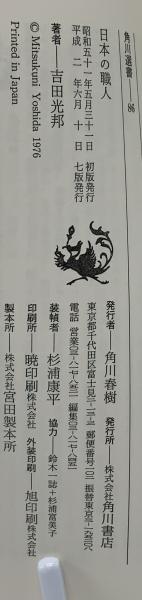 角川選書 86
日本の職人
昭和五十一年五月三十一日 初版発行
平成 二 年 六 月 十 日 七版発行
著者——吉田光邦
© Mitsukuni Yoshida 1976
Printed in Japan
発行者——角川春樹 発行所——株式会社角川書店
東京都千代田区富士見 郵便番号一〇二 振替東京
電話 営業 編集
装幀者——杉浦康平 協力——鈴木一誌+杉浦富美子
印刷所——暁印刷株式会社 外装印刷——旭印刷株式会社
製本所——株式会社宮田製本所